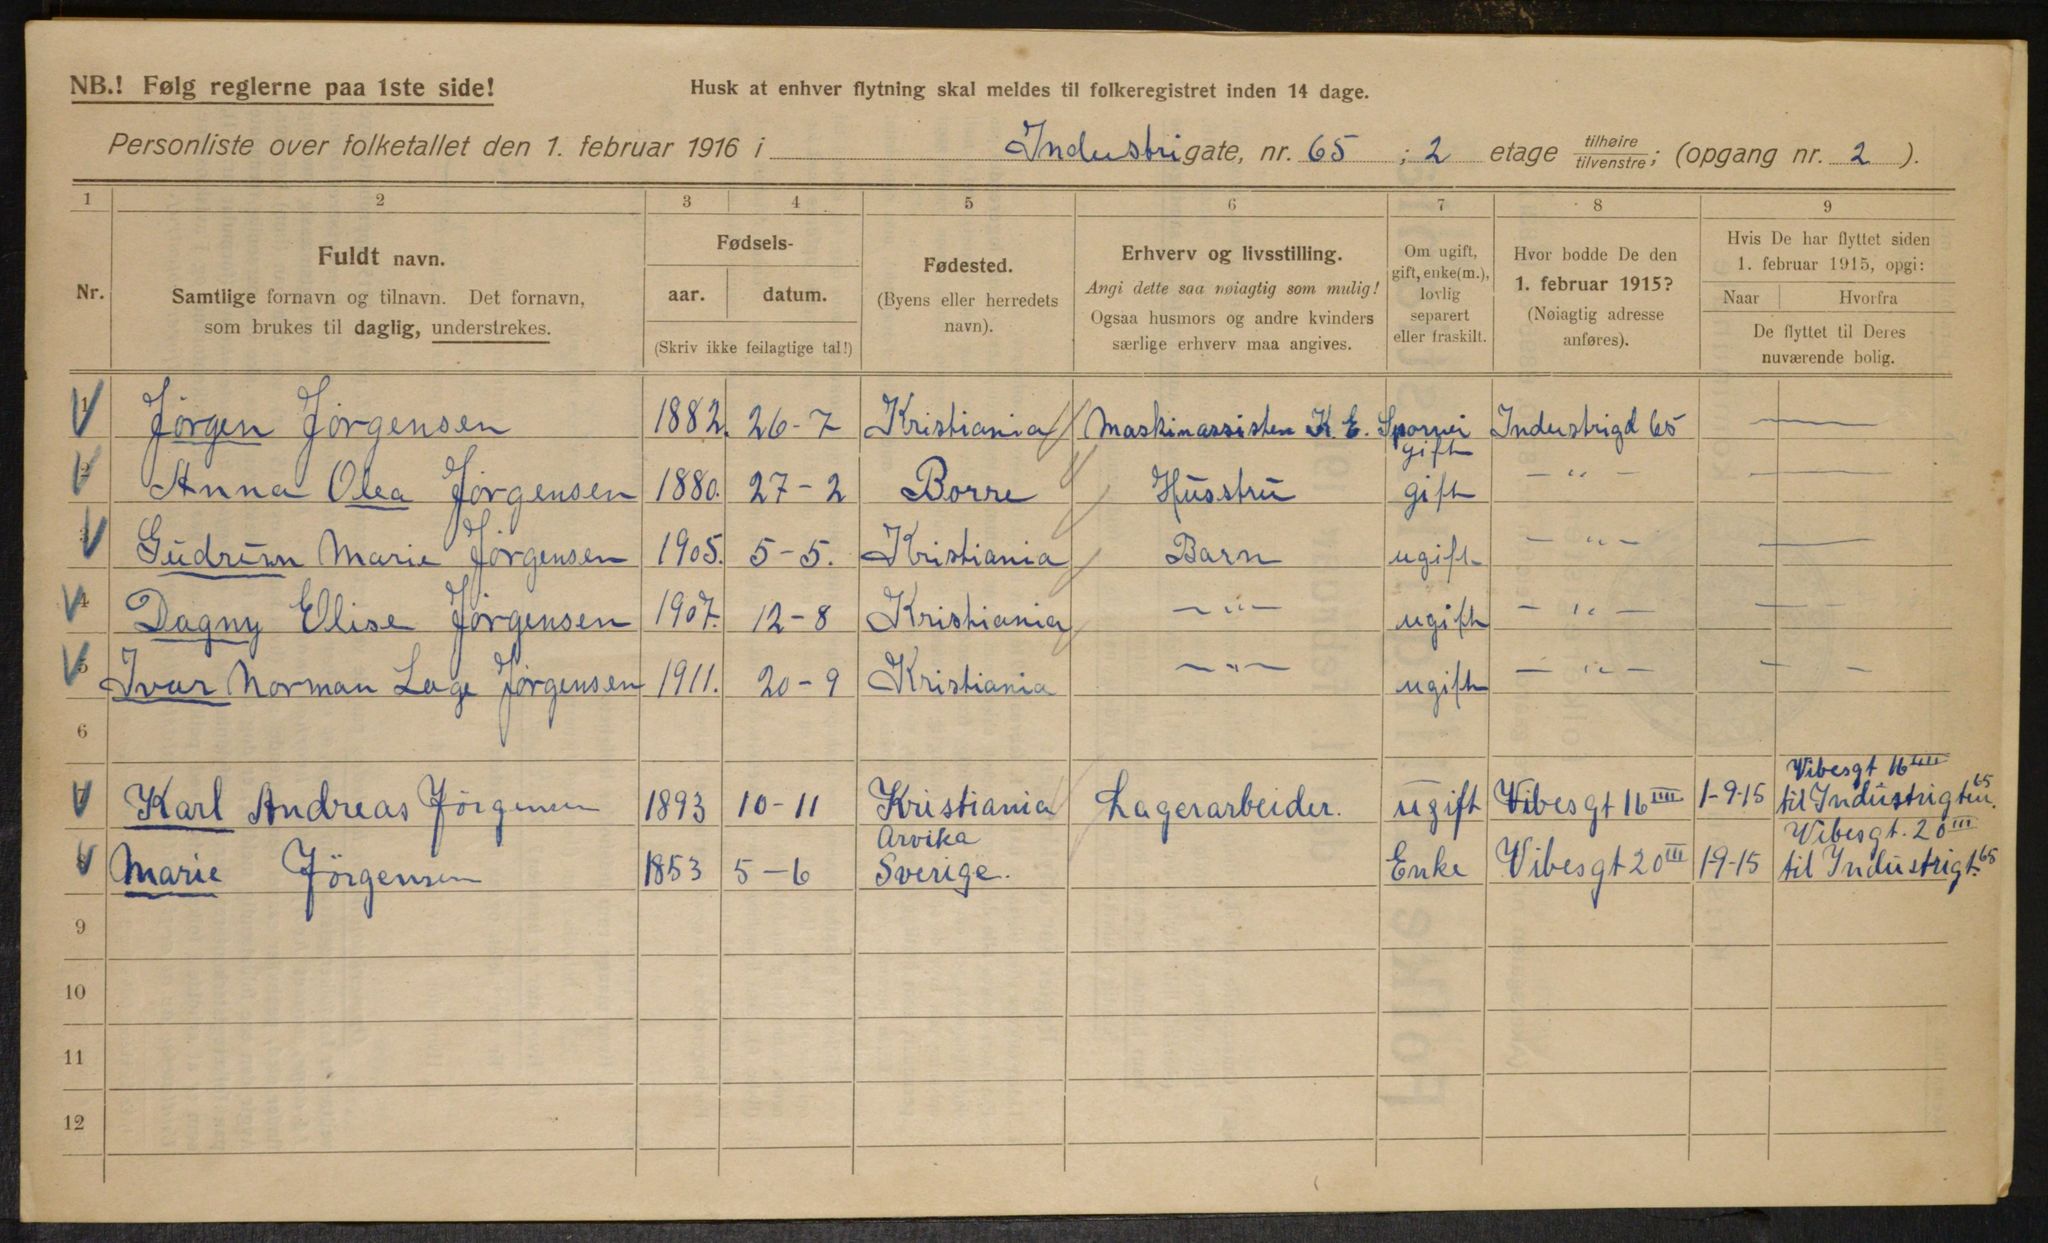 NB.! Følg reglerne paa 1ste side!
Husk at enhver flytning skal meldes til folkeregistret inden 14 dage.
Personliste over folketallet den 1. februar 1916 i Industrigate, nr. 65 ; 2 etage tilhøire/tilvenstre; (opgang nr. 2 ).
1 2 3 4 5 6 7 8 9
Nr.
Fuldt navn.
Samtlige fornavn og tilnavn. Det fornavn,
som brukes til daglig, understrekes.
Fødsels-
aar. datum.
(Skriv ikke feilagtige tal!)
Fødested.
(Byens eller herredets
navn).
Erhverv og livsstilling.
Angi dette saa nøiagtig som mulig!
Ogsaa husmors og andre kvinders
særlige erhverv maa angives.
Om ugift,
gift, enke(m.),
lovlig
separert
eller fraskilt.
Hvor bodde De den
1. februar 1915?
(Nøiagtig adresse
anføres).
Hvis De har flyttet siden
1. februar 1915, opgi:
Naar Hvorfra
De flyttet til Deres
nuværende bolig.
1 Jörgen Jörgensen 1882. 26-7 Kristiania Maskinassisten K. E. Sporvei gift Industrigd 65 —
2 Anna Olea Jörgensen 1880. 27-2 Borre Hüsstrü gift — " — —
3 Güdrün Marie Jörgensen 1905. 5-5. Kristiania Barn ugift — " — —
4 Dagny Elise Jörgensen 1907. 12-8 Kristiania — " — ugift — " — — —
5 Ivar Norman Lage Jörgensen 1911. 20-9 Kristiania — " — ugift — " — — —
6
7 Karl Andreas Jörgensen 1893 10-11 Kristiania Lagerarbeider. ugift Vibesgt 16 IIII 1-9-15 Vibesgt 16 IIII
til Indüstrigten 65.
8 Marie Jörgensen 1853 5-6 Arvika
Sverige. Enke Vibesgt 20 III 1-9-15 Vibesgt. 20 III
til Indüstrigt. 65
9
10
11
12